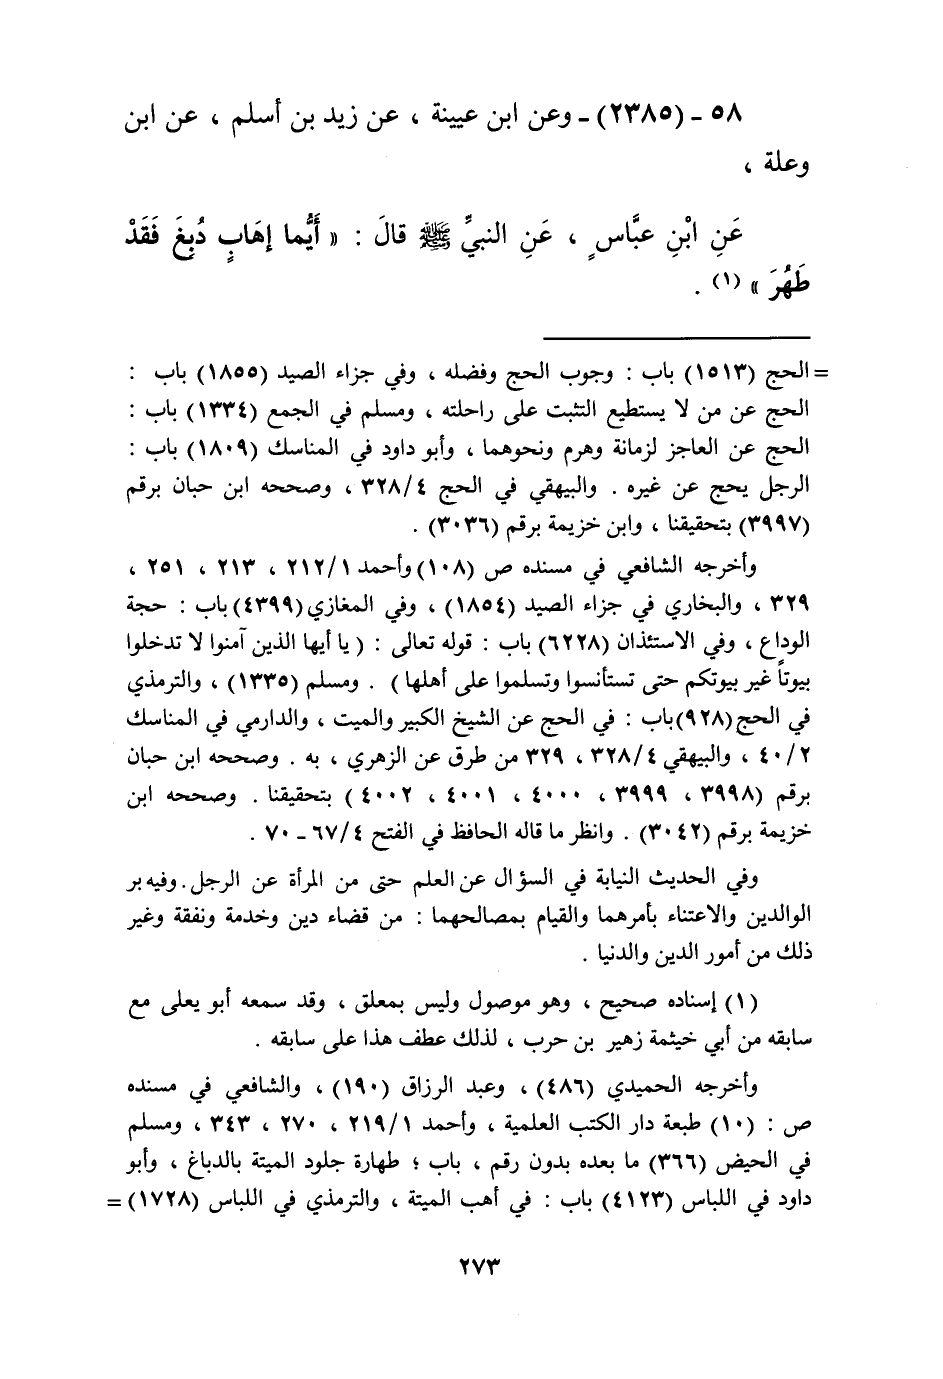 ٥٨ - (٢٣٨٥) - وعن ابن عيينة ، عن زيد بن أسلم ، عن ابن
وعلة ،
عَنِ ابْنِ عبَّاسٍ ، عَنِ النبيِّ ﷺ قالَ : « أَيُّما إهَابٍ دُبِغَ فَقَدْ
طَهُرَ » (١) .
= الحج (١٥١٣) باب : وجوب الحج وفضله ، وفي جزاء الصيد (١٨٥٥) باب :
الحج عن من لا يستطيع التثبت على راحلته ، ومسلم في الجمع (١٣٣٤) باب :
الحج عن العاجز لزمانة وهرم ونحوهما ، وأبو داود في المناسك (١٨٠٩) باب :
الرجل يحج عن غيره . والبيهقي في الحج ٣٢٨/٤ ، وصححه ابن حبان برقم
(٣٩٩٧) بتحقيقنا ، وابن خزيمة برقم (٣٠٣٦) .
وأخرجه الشافعي في مسنده ص (١٠٨) وأحمد ٢١٢/١ ، ٢١٣ ، ٢٥١ ،
٣٢٩ ، والبخاري في جزاء الصيد (١٨٥٤) ، وفي المغازي (٤٣٩٩) باب : حجة
الوداع ، وفي الاستئذان (٦٢٢٨) باب : قوله تعالى : ( يا أيها الذين آمنوا لا تدخلوا
بيوتاً غير بيوتكم حتى تستأنسوا وتسلموا على أهلها ) . ومسلم (١٣٣٥) ، والترمذي
في الحج (٩٢٨) باب : في الحج عن الشيخ الكبير والميت ، والدارمي في المناسك
٤٠/٢ ، والبيهقي ٣٢٨/٤ ، ٣٢٩ من طرق عن الزهري ، به . وصححه ابن حبان
برقم (٣٩٩٨ ، ٣٩٩٩ ، ٤٠٠٠ ، ٤٠٠١ ، ٤٠٠٢ ) بتحقيقنا . وصححه ابن
خزيمة برقم (٣٠٤٢) . وانظر ما قاله الحافظ في الفتح ٦٧/٤ - ٧٠ .
وفي الحديث النيابة في السؤال عن العلم حتى من المرأة عن الرجل . وفيه بر
الوالدين والاعتناء بأمرهما والقيام بمصالحهما : من قضاء دين وخدمة ونفقة وغير
ذلك من أمور الدين والدنيا .
(١) إسناده صحيح ، وهو موصول وليس بمعلق ، وقد سمعه أبو يعلى مع
سابقه من أبي خيثمة زهير بن حرب ، لذلك عطف هذا على سابقه .
وأخرجه الحميدي (٤٨٦) ، وعبد الرزاق (١٩٠) ، والشافعي في مسنده
ص : (١٠) طبعة دار الكتب العلمية ، وأحمد ٢١٩/١ ، ٢٧٠ ، ٣٤٣ ، ومسلم
في الحيض (٣٦٦) ما بعده بدون رقم ، باب ؛ طهارة جلود الميتة بالدباغ ، وأبو
داود في اللباس (٤١٢٣) باب : في أهب الميتة ، والترمذي في اللباس (١٧٢٨) =
٢٧٣